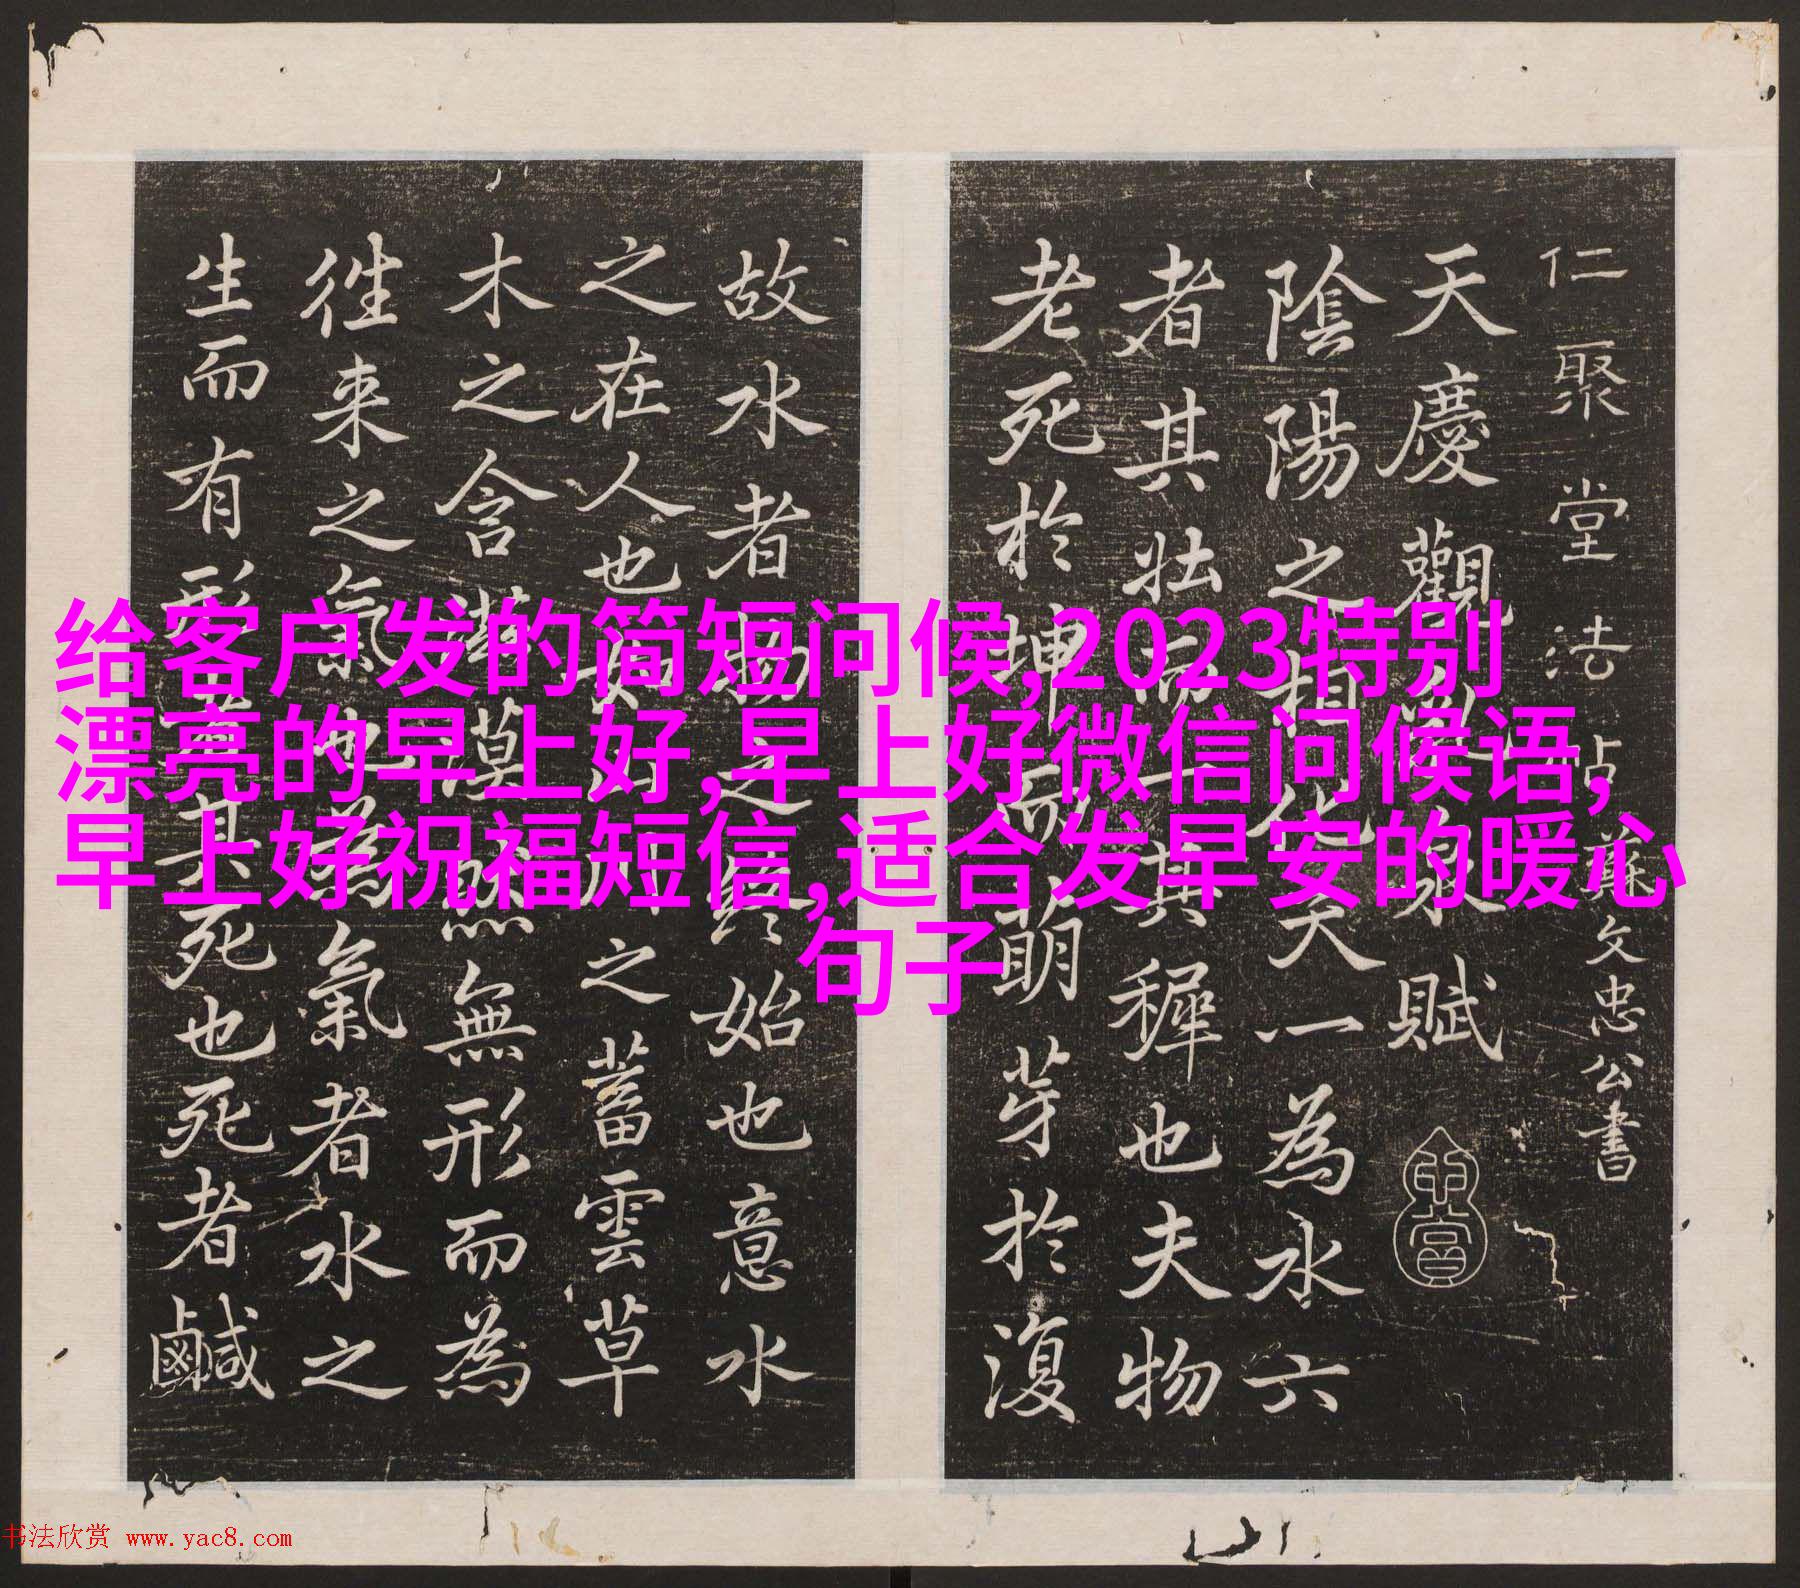 给客户发的简短问候,2023特别
漂亮的早上好,早上好微信问候语,
早上好祝福短信,适合发早安的暖心
句子
仁聚堂法 文忠公書
天慶觀 泉賦
陰陽之相化天一為水六
者其壯而 其穉也夫物
老死於坤而萌芽於復
故水者物之終始也意水
之在人也 之蓄雲草
木之含 漠然無形而為
徃来之氣也為氣者水之
生而有形 其死也死者鹹
书法欣赏 www.yac8.com